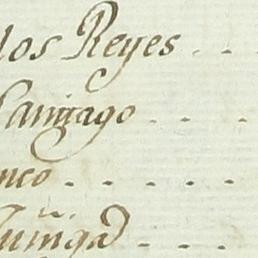 los Reyes . .
Santiago . . .
nco . . . . .
Zuñiga . . .